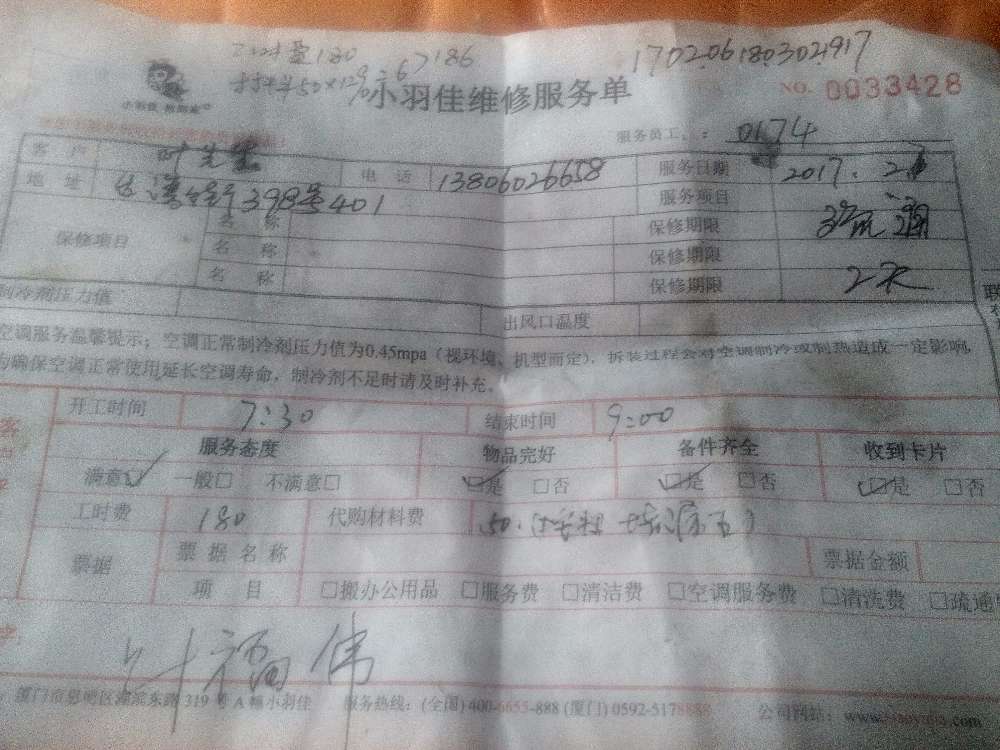 180 186
50×12%=6
170206180302917
小羽佳维修服务单
NO. 0033428
服务员工: 0174
客户 叶先生 电话 13806026658 服务日期 2017.2
地址 398号401 服务项目
保修项目 名称 保修期限
名称 保修期限
名称 保修期限 2天
制冷剂压力值 出风口温度
空调服务温馨提示:空调正常制冷剂压力值为0.45mpa(视环境、机型而定),拆装过程会对空调制冷或制热造成一定影响,
为确保空调正常使用延长空调寿命,制冷剂不足时请及时补充。
开工时间 7:30 结束时间 9:00
服务态度 物品完好 备件齐全 收到卡片
满意☑ 一般□ 不满意□ ☑是 □否 ☑是 □否 ☑是 □否
工时费 180 代购材料费 50.
票据 票据名称 票据金额
项目 □搬办公用品 □服务费 □清洁费 □空调服务费 □清洗费 □疏通
叶福伟
厦门市思明区湖滨东路319号A幢小羽佳 服务热线:(全国)400-6655-888 (厦门)0592-5178888 公司网站: